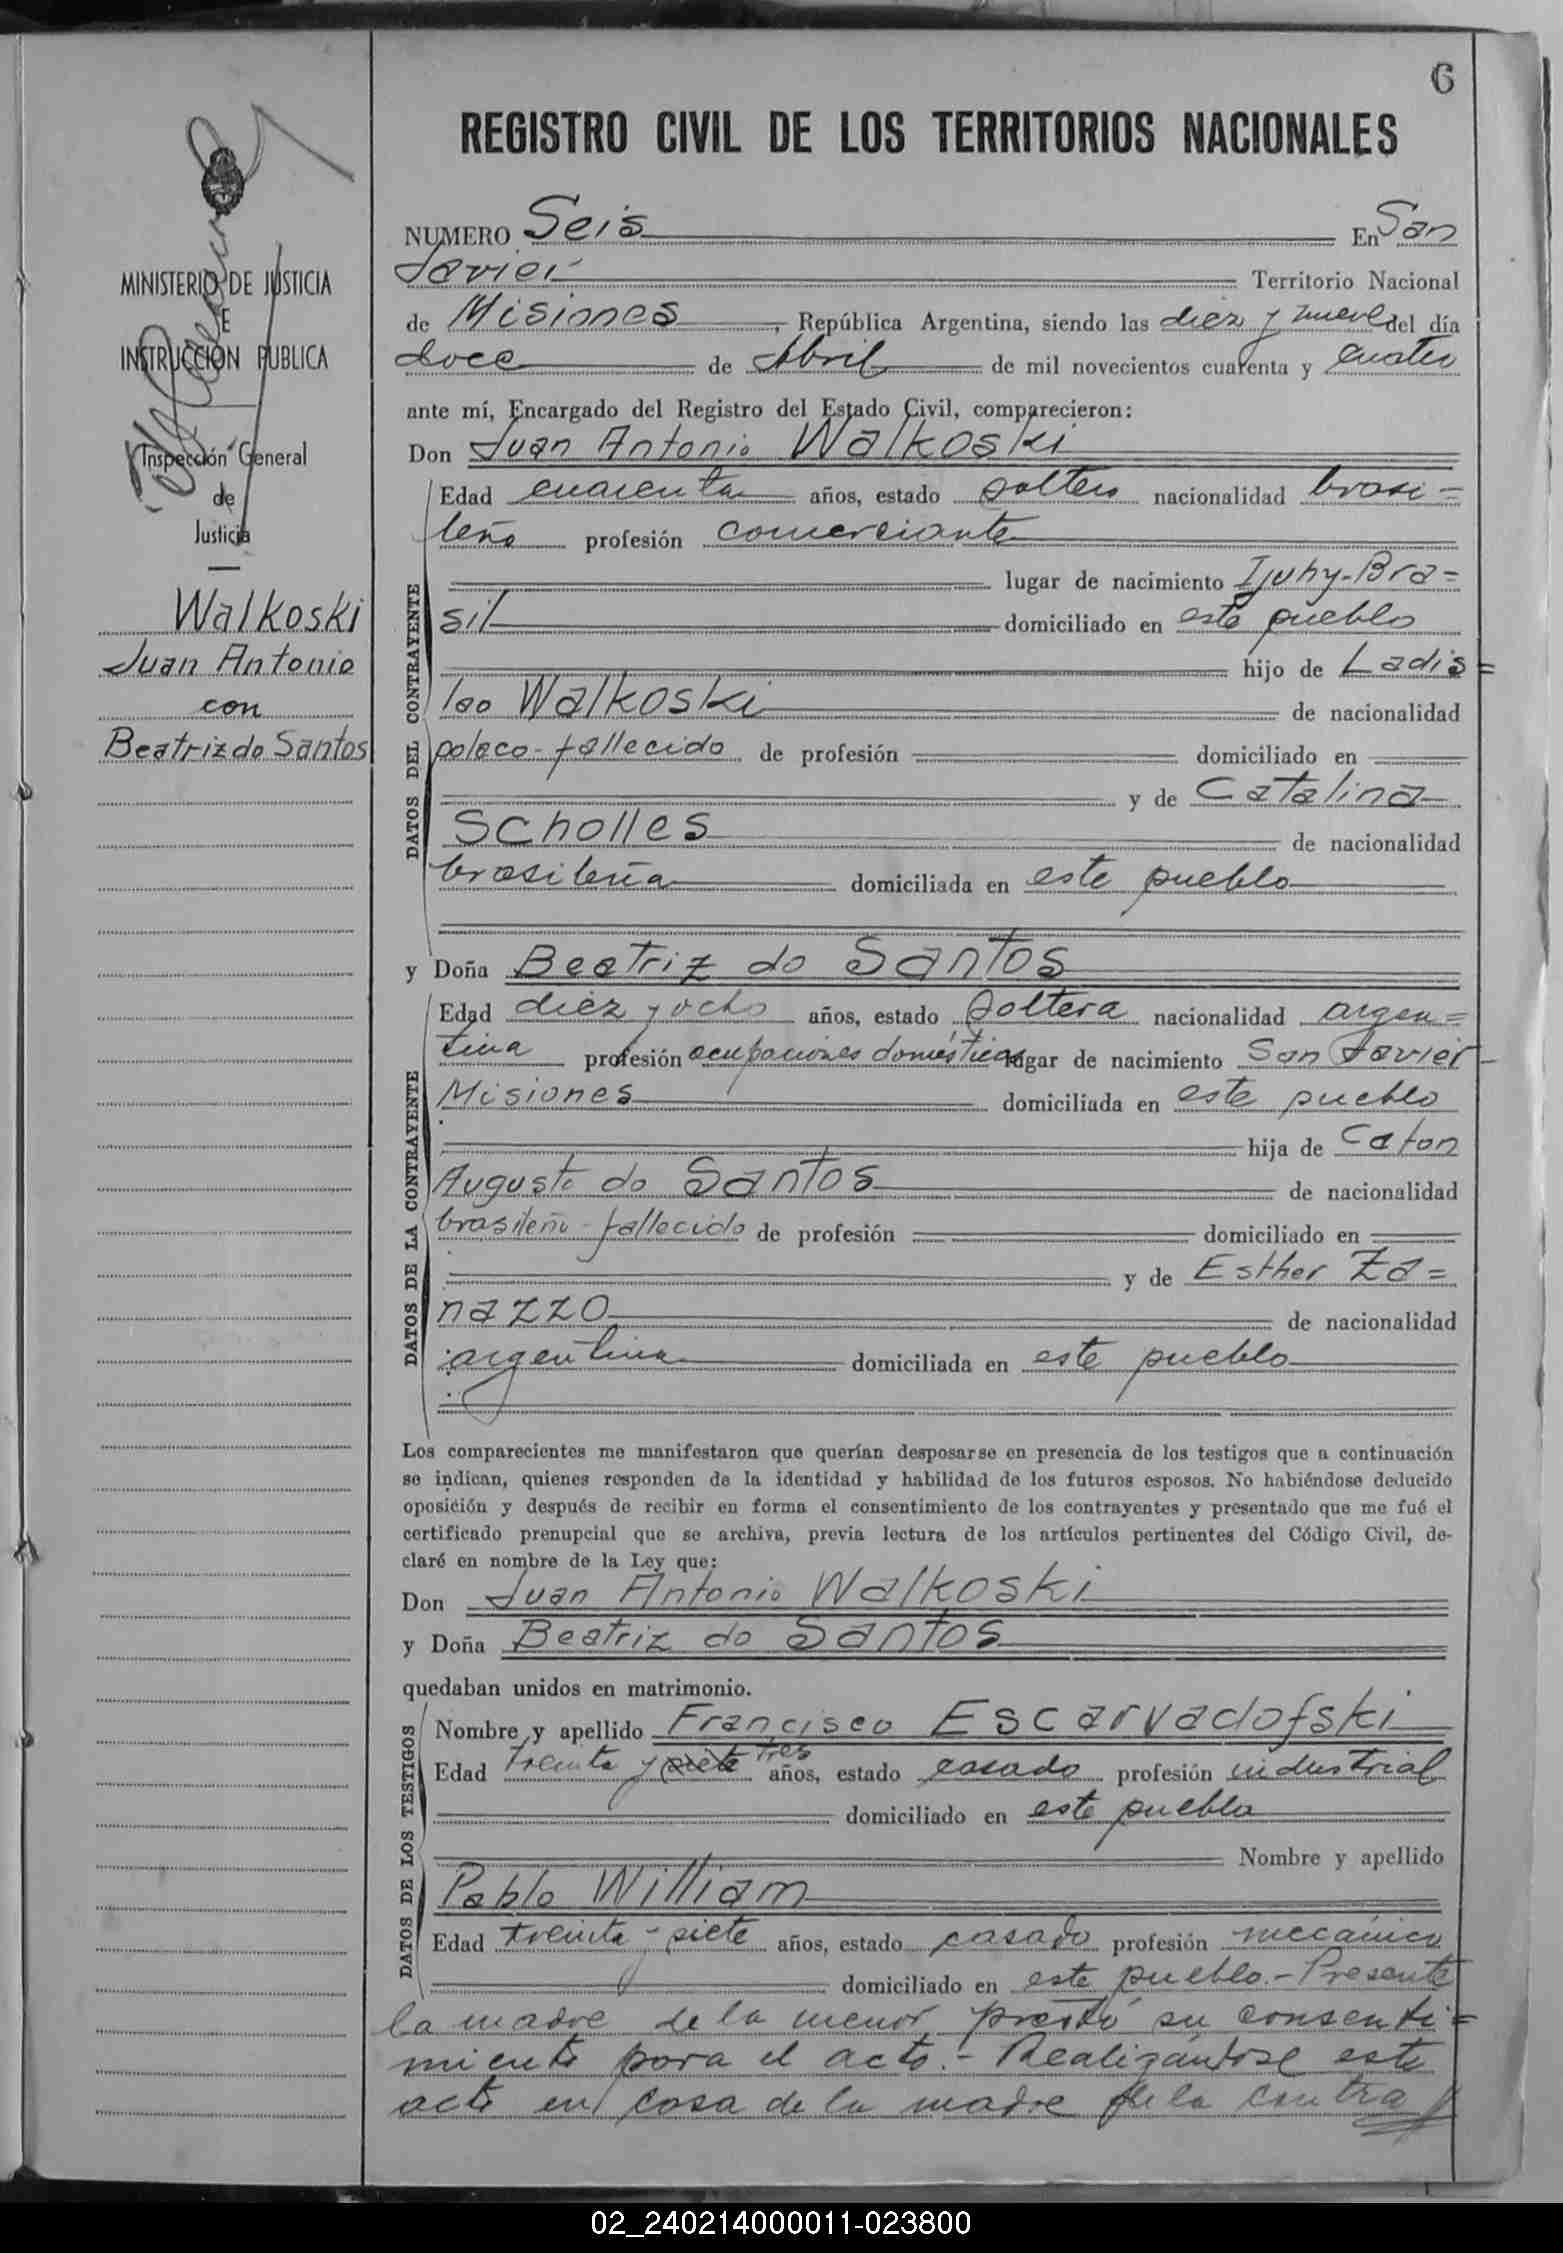 6
REGISTRO CIVIL DE LOS TERRITORIOS NACIONALES
MINISTERIO DE JUSTICIA
E
INSTRUCCIÓN PUBLICA
Inspección General
de
Justicia
Walkoski
Juan Antonio
con
Beatriz do Santos
NUMERO Seis En San
Javier Territorio Nacional
de Misiones, República Argentina, siendo las diez y nueve del día
doce de Abril de mil novecientos cuarenta y cuatro
ante mí, Encargado del Registro del Estado Civil, comparecieron:
Don Juan Antonio Walkoski
DATOS DEL CONTRAYENTE
Edad cuarenta años, estado soltero nacionalidad brasi=
leño profesión comerciante
lugar de nacimiento Ijuhy-Bra=
sil domiciliado en este pueblo
hijo de Ladis=
lao Walkoski de nacionalidad
polaco-fallecido de profesión domiciliado en
y de Catalina
Scholles de nacionalidad
brasileña domiciliada en este pueblo
y Doña Beatriz do Santos
DATOS DE LA CONTRAYENTE
Edad diez y ocho años, estado soltera nacionalidad argen=
tina profesión ocupaciones domésticas lugar de nacimiento San Javier-
Misiones domiciliada en este pueblo
hija de Caton
Augusto do Santos de nacionalidad
brasileño-fallecido de profesión domiciliado en
y de Esther Za=
nazzo de nacionalidad
argentina domiciliada en este pueblo
Los comparecientes me manifestaron que querían desposarse en presencia de los testigos que a continuación
se indican, quienes responden de la identidad y habilidad de los futuros esposos. No habiéndose deducido
oposición y después de recibir en forma el consentimiento de los contrayentes y presentado que me fué el
certificado prenupcial que se archiva, previa lectura de los artículos pertinentes del Código Civil, de-
claré en nombre de la Ley que:
Don Juan Antonio Walkoski
y Doña Beatriz do Santos
quedaban unidos en matrimonio.
DATOS DE LOS TESTIGOS
Nombre y apellido Francisco Escarvadofski
Edad treinta y siete tres años, estado casado profesión industrial
domiciliado en este pueblo
Nombre y apellido
Pablo William
Edad treinta y siete años, estado casado profesión mecánico
domiciliado en este pueblo.-Presente
la madre de la menor prestó su consenti=
miento para el acto.- Realizándose este
acto en casa de la madre de la contra
02_240214000011-023800